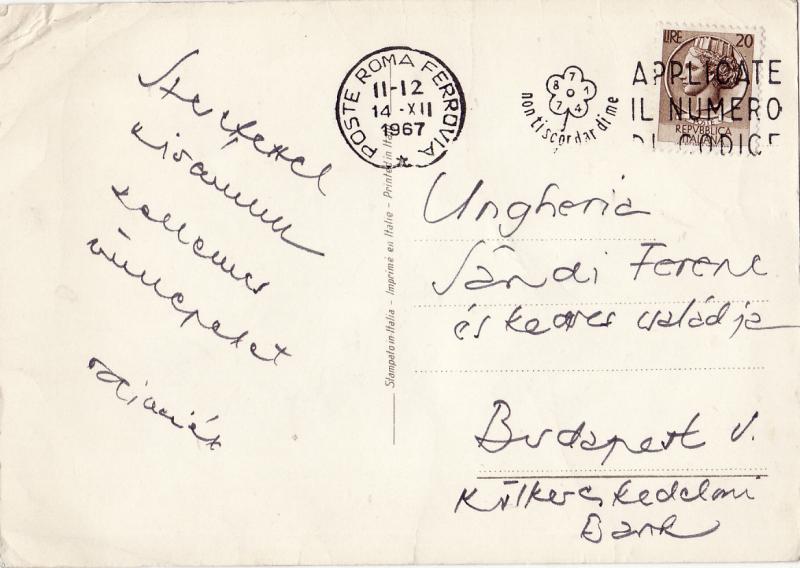 Szeretettel
kivánunk
kellemes
ünnepeket
POSTE ROMA FERROVIA
11-12
14-XII
1967
8 7 1 4 7
non ti scordar di me
APPLICATE
IL NUMERO
DI CODICE
LIRE 20
REPVBBLICA
ITALIANA
Stampato in Italia - Imprimé en Italie - Printed in Italy
Ungheria
Sándi Ferenc
és kedves családja
Budapest V.
Külkereskedelmi
Bank